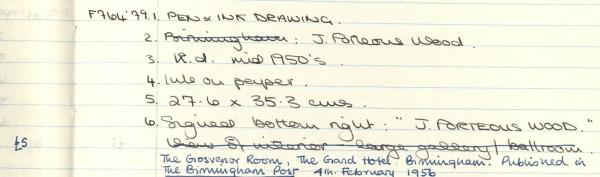 F764'79.1. PEN & INK DRAWING.
2. Birmingham: J. Porteous Wood.
3. K.d. mid 1950's.
4. Ink on paper.
5. 27.6 x 35.3 cms.
6. Signed bottom right: "J. PORTEOUS WOOD."
View of interior - large gallery / ballroom.
£5
The Grosvenor Room, The Grand Hotel. Birmingham. Published in
The Birmingham Post 4th February 1956